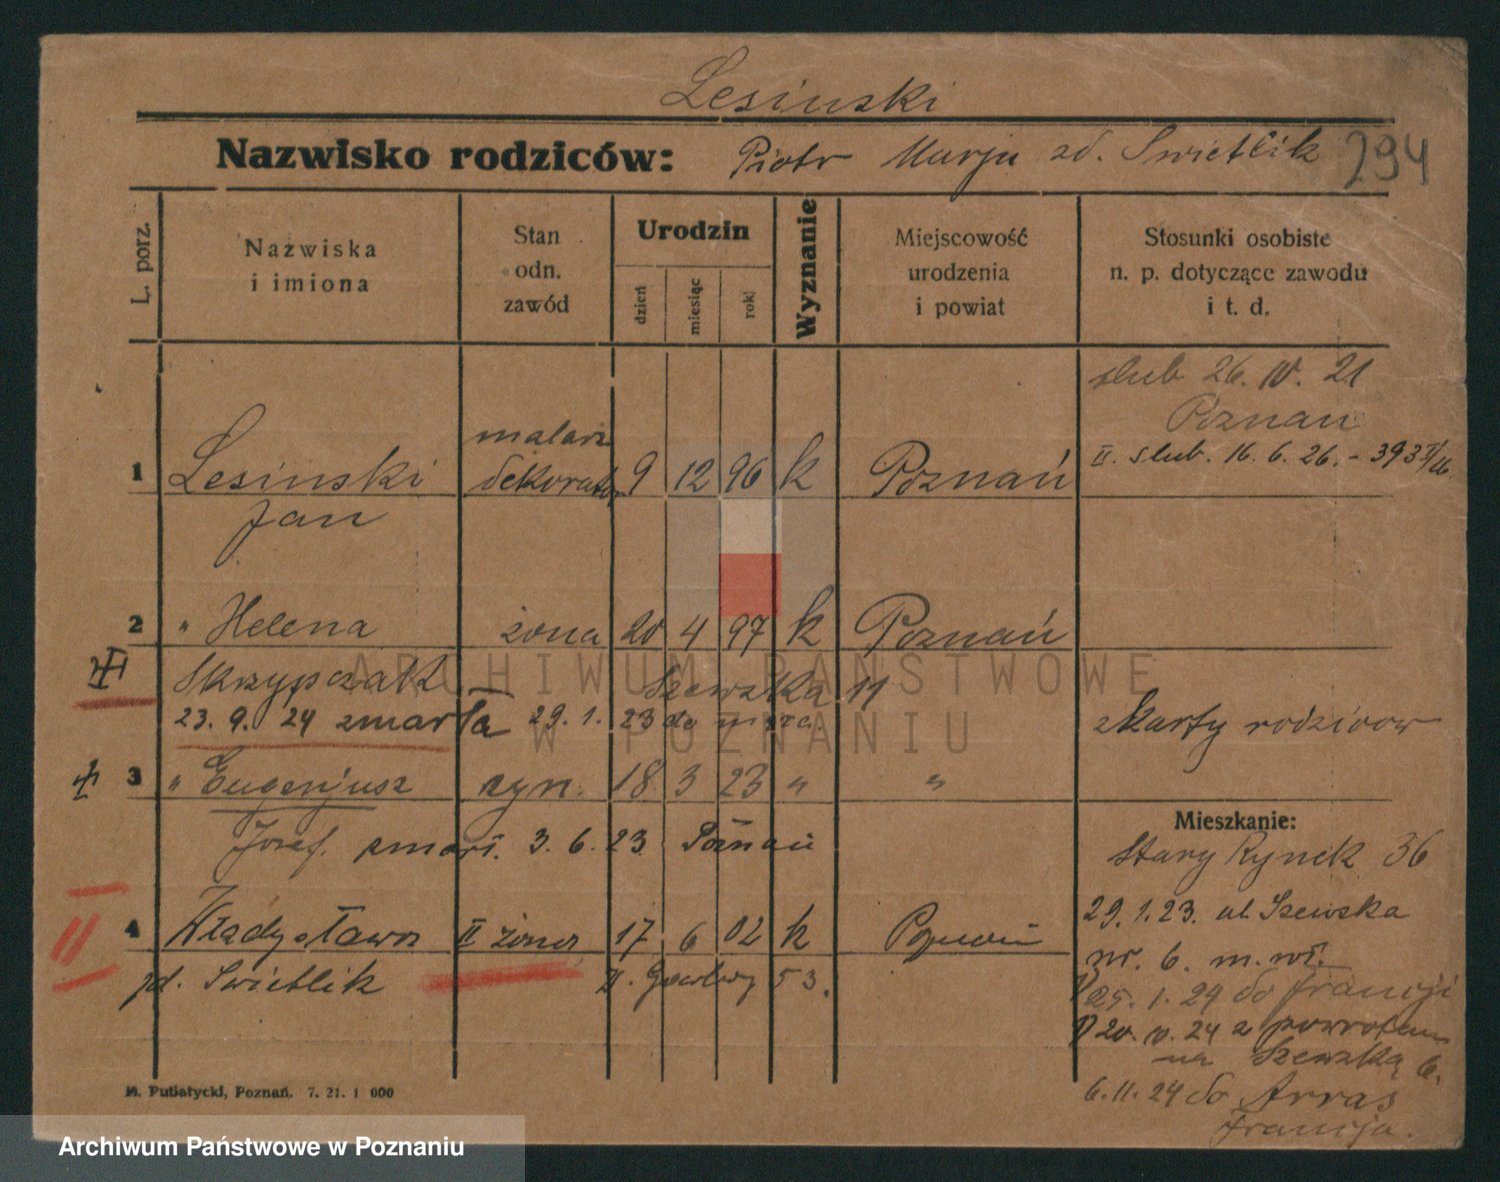 Lesinski
Nazwisko rodziców: Piotr Marja zd. Swietlik 294
L. porz.
Nazwiska i imiona
Stan odn. zawód
Urodzin
dzień
miesiąc
rok
Wyznanie
Miejscowość urodzenia i powiat
Stosunki osobiste n. p. dotyczące zawodu i t. d.
slub 26. IV. 21
Poznan
II. slub. 16. 6. 26. -
malarz
1 Lesinski dekorator 9 12 96 k Poznań
Jan
2 " Helena żona 20 4 97 k Poznań
Skrzypczak Szewska 11
23. 9. 24 zmarła 29. 1. 23 do
z karty rodzicow
3 " Eugenjusz syn. 18 3 23 " "
Józef. zmarł. 3. 6. 23 Poznań
Mieszkanie:
Stary Rynek 36
29. 1. 23. ul Szewska
nr. 6. m. wł.
4 Władysława II żona 17 6 02 k Poznań
II
zd. Swietlik 53.
25. 1. 24 do Francji
20. IV. 24 z powrotem
na Szewską 6.
6. 11. 24 do Arras
Francja.
M. Putiatycki, Poznań. 7. 21. 1 000
ARCHIWUM PAŃSTWOWE
W POZNANIU
Archiwum Państwowe w Poznaniu